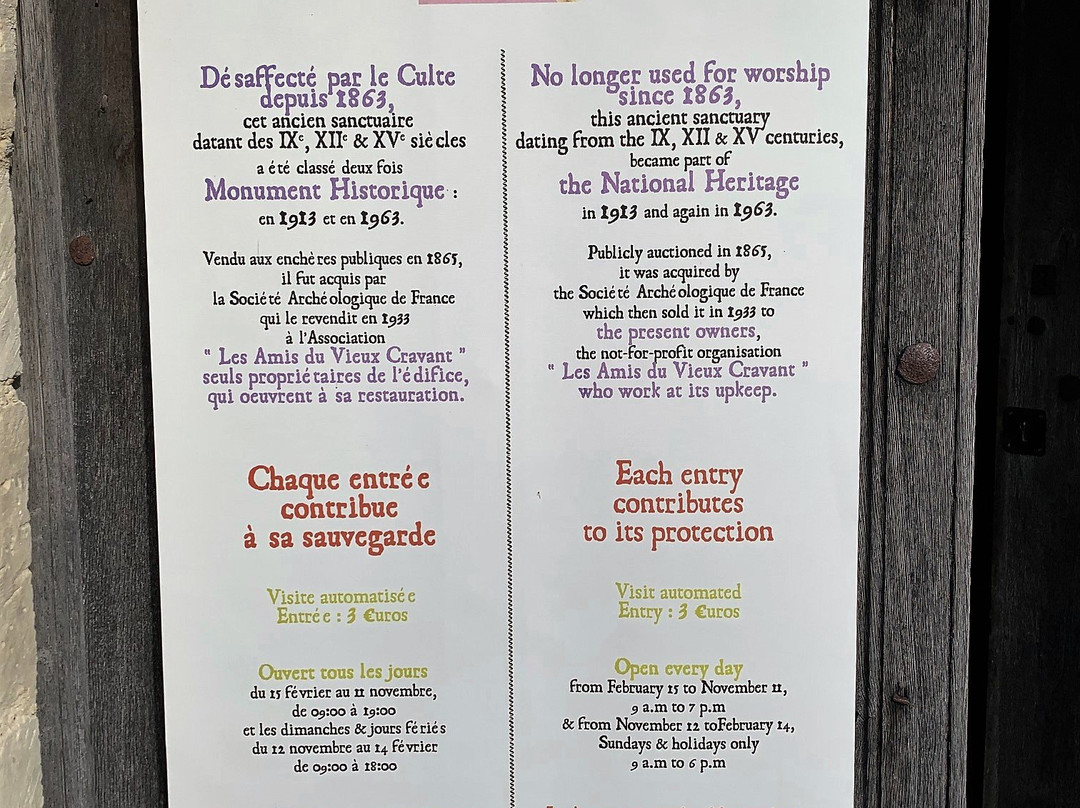 Désaffecté par le Culte
depuis 1863,
cet ancien sanctuaire
datant des IXe, XIIe & XVe siècles
a été classé deux fois
Monument Historique :
en 1913 et en 1963.
Vendu aux enchères publiques en 1865,
il fut acquis par
la Société Archéologique de France
qui le revendit en 1933
à l'Association
" Les Amis du Vieux Cravant "
seuls propriétaires de l'édifice,
qui oeuvrent à sa restauration.
Chaque entrée
contribue
à sa sauvegarde
Visite automatisée
Entrée : 3 €uros
Ouvert tous les jours
du 15 février au 11 novembre,
de 09:00 à 19:00
et les dimanches & jours fériés
du 12 novembre au 14 février
de 09:00 à 18:00
No longer used for worship
since 1863,
this ancient sanctuary
dating from the IX, XII & XV centuries,
became part of
the National Heritage
in 1913 and again in 1963.
Publicly auctioned in 1865,
it was acquired by
the Société Archéologique de France
which then sold it in 1933 to
the present owners,
the not-for-profit organisation
" Les Amis du Vieux Cravant "
who work at its upkeep.
Each entry
contributes
to its protection
Visit automated
Entry : 3 €uros
Open every day
from February 15 to November 11,
9 a.m to 7 p.m
& from November 12 toFebruary 14,
Sundays & holidays only
9 a.m to 6 p.m